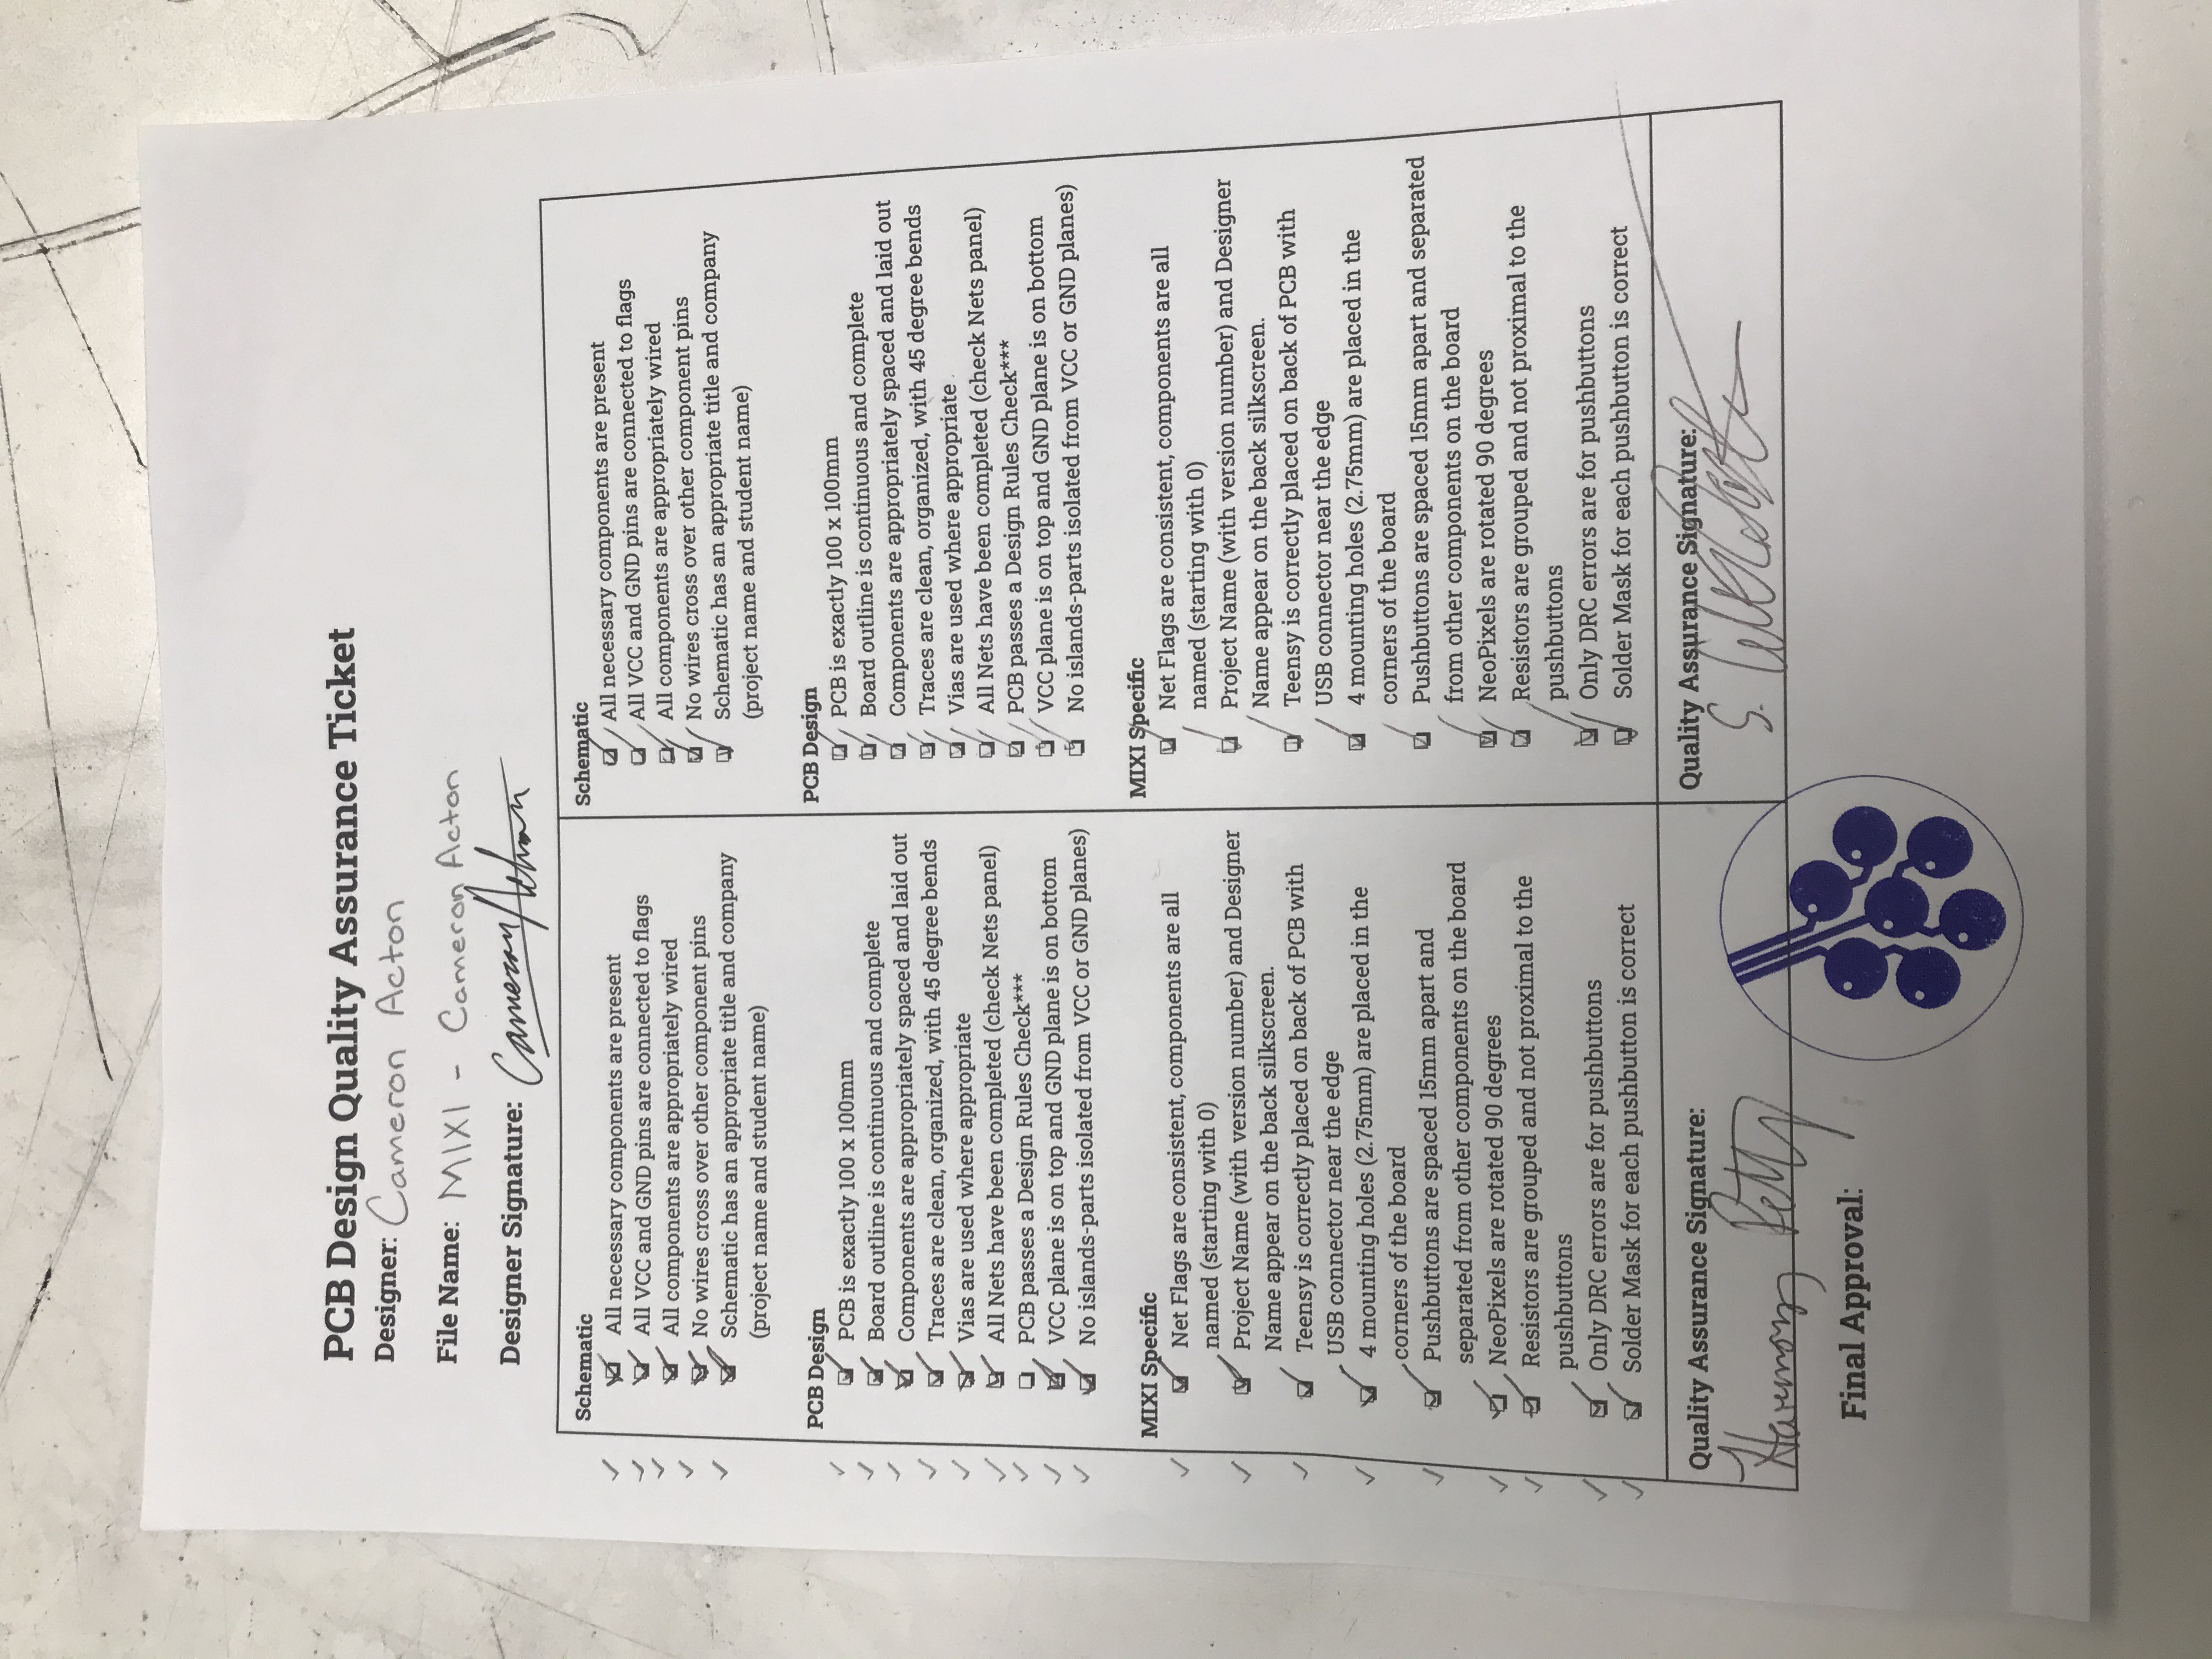 PCB Design Quality Assurance Ticket
Designer: Cameron Acton
File Name: MIXI - Cameron Acton
Designer Signature: Cameron Acton
Schematic
All necessary components are present
All VCC and GND pins are connected to flags
All components are appropriately wired
No wires cross over other component pins
Schematic has an appropriate title and company
(project name and student name)
PCB Design
PCB is exactly 100 x 100mm
Board outline is continuous and complete
Components are appropriately spaced and laid out
Traces are clean, organized, with 45 degree bends
Vias are used where appropriate
All Nets have been completed (check Nets panel)
PCB passes a Design Rules Check***
VCC plane is on top and GND plane is on bottom
No islands-parts isolated from VCC or GND planes)
MIXI Specific
Net Flags are consistent, components are all
named (starting with 0)
Project Name (with version number) and Designer
Name appear on the back silkscreen.
Teensy is correctly placed on back of PCB with
USB connector near the edge
4 mounting holes (2.75mm) are placed in the
corners of the board
Pushbuttons are spaced 15mm apart and
separated from other components on the board
NeoPixels are rotated 90 degrees
Resistors are grouped and not proximal to the
pushbuttons
Only DRC errors are for pushbuttons
Solder Mask for each pushbutton is correct
Quality Assurance Signature:
Harmony Petty
Schematic
All necessary components are present
All VCC and GND pins are connected to flags
All components are appropriately wired
No wires cross over other component pins
Schematic has an appropriate title and company
(project name and student name)
PCB Design
PCB is exactly 100 x 100mm
Board outline is continuous and complete
Components are appropriately spaced and laid out
Traces are clean, organized, with 45 degree bends
Vias are used where appropriate
All Nets have been completed (check Nets panel)
PCB passes a Design Rules Check***
VCC plane is on top and GND plane is on bottom
No islands-parts isolated from VCC or GND planes)
MIXI Specific
Net Flags are consistent, components are all
named (starting with 0)
Project Name (with version number) and Designer
Name appear on the back silkscreen.
Teensy is correctly placed on back of PCB with
USB connector near the edge
4 mounting holes (2.75mm) are placed in the
corners of the board
Pushbuttons are spaced 15mm apart and separated
from other components on the board
NeoPixels are rotated 90 degrees
Resistors are grouped and not proximal to the
pushbuttons
Only DRC errors are for pushbuttons
Solder Mask for each pushbutton is correct
Quality Assurance Signature:
S.
Final Approval: